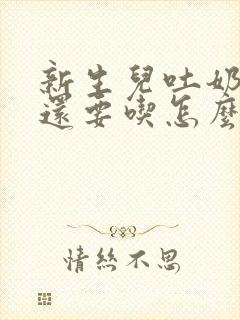 新生兒吐奶
還要喫怎麼
情絲不思